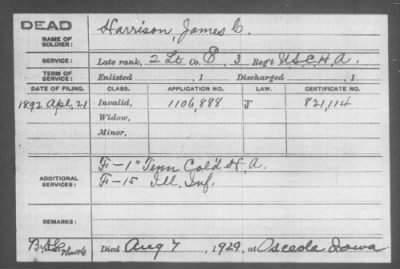 DEAD
NAME OF SOLDIER: Harrison, James C.
SERVICE: Late rank, 2 Lt. Co. E, 3 Reg't U.S.C.H.A.
TERM OF SERVICE: Enlisted , 1 Discharged , 1
DATE OF FILING. CLASS. APPLICATION NO. LAW. CERTIFICATE NO.
1892 Apl, 21 Invalid, 1106,888 J 821,114
Widow,
Minor,
ADDITIONAL SERVICES: F-1" Tenn Col'd H.A.
F-15 Ill. Inf.
REMARKS:
Died Aug 7, 1929, at Osceola Iowa